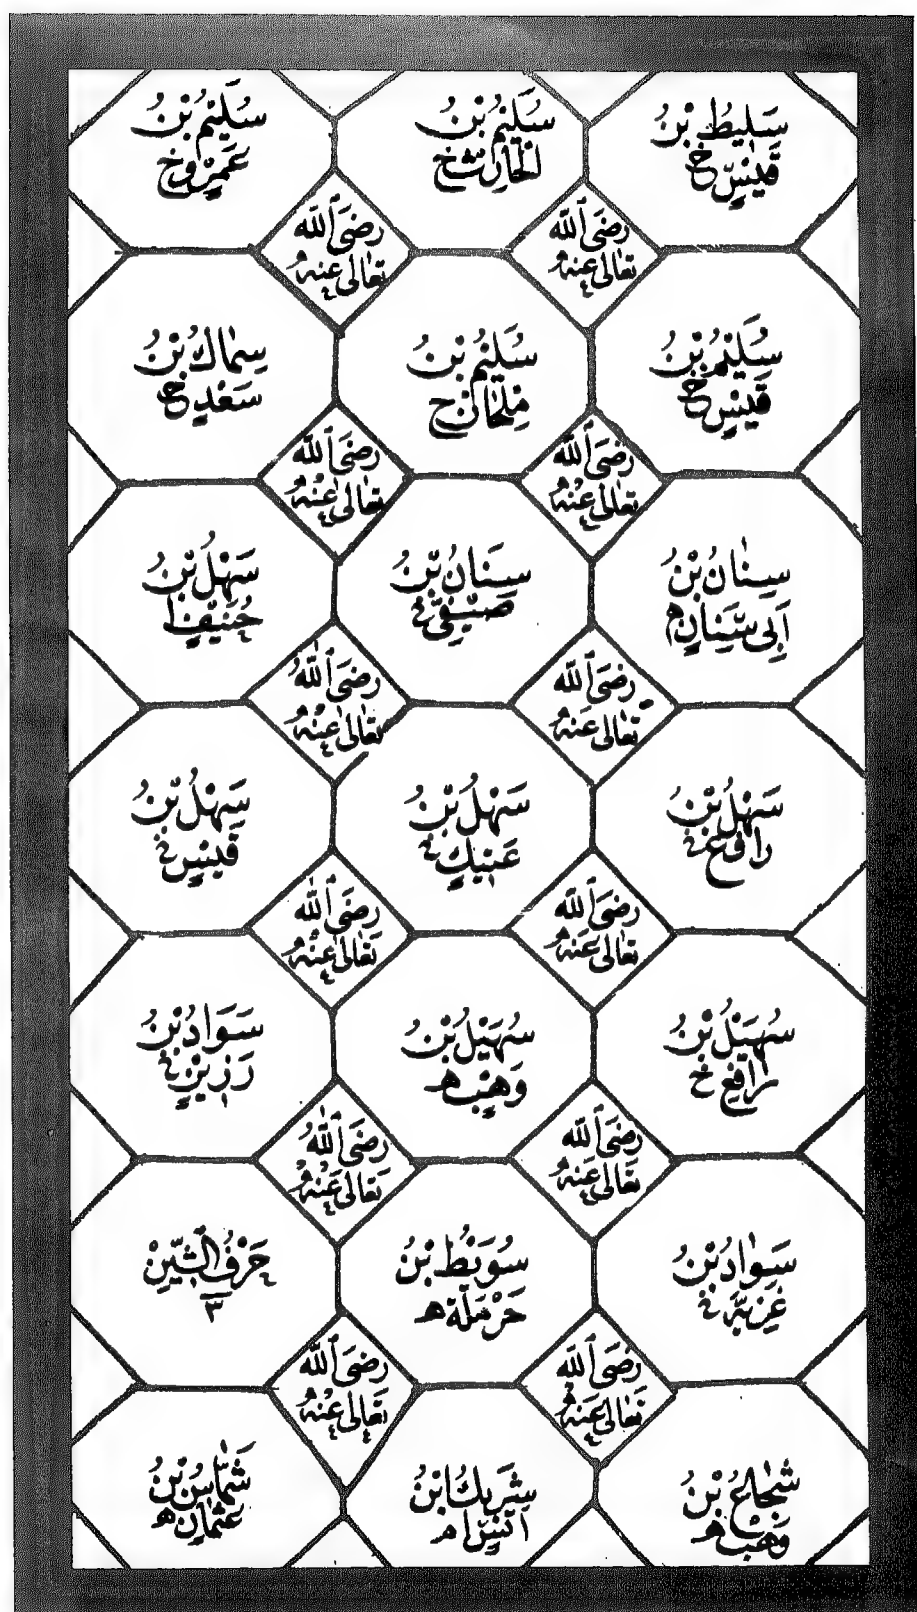 سَلِيطُ بْنُ
قَيْسٍ خ
سُلَيْمُ بْنُ
الْحَارِثِ خ
سُلَيْمُ بْنُ
عَمْرٍو خ
رَضِيَ ٱللَّه
تَعَالىٰ عَنْهُ
رَضِيَ ٱللَّه
تَعَالىٰ عَنْهُ
سُلَيْمُ بْنُ
قَيْسٍ خ
سُلَيْمُ بْنُ
مِلْحَان خ
سِمَاكُ بْنُ
سَعْدٍ خ
رَضِيَ ٱللَّه
تَعَالىٰ عَنْهُ
رَضِيَ ٱللَّه
تَعَالىٰ عَنْهُ
سِنَانُ بْنُ
اَبِى سِنَانٍ ه
سِنَانُ بْنُ
صَيْفِى خ
سَهْلُ بْنُ
حُنَيْفٍ ا
رَضِيَ ٱللَّه
تَعَالىٰ عَنْهُ
رَضِيَ ٱللَّهُ
تَعَالىٰ عَنْهُ
سَهْلُ بْنُ
رَافِعٍ خ
سَهْلُ بْنُ
عَتِيكٍ خ
سَهْلُ بْنُ
قَيْسٍ خ
رَضِيَ ٱللَّه
تَعَالىٰ عَنْهُ
رَضِيَ ٱللَّه
تَعَالىٰ عَنْهُ
سُهَيْلُ بْنُ
رَافِعٍ خ
سُهَيْلُ بْنُ
وَهْبٍ ه
سَوَادُ بْنُ
رَزِيْنٍ خ
رَضِيَ ٱللَّه
تَعَالىٰ عَنْهُ
رَضِيَ ٱللَّهُ
تَعَالىٰ عَنْهُ
سَوَادُ بْنُ
غَزِيَّة خ
سُوَيْبِطُ بْنُ
حَرْمَلَة ه
حَرْفُ الشِّيْنِ
٣
رَضِيَ ٱللَّه
تَعَالىٰ عَنْهُ
رَضِيَ ٱللَّه
تَعَالىٰ عَنْهُ
شُجَاعُ بْنُ
وَهْبٍ ه
شَرِيكُ ابْنُ
اَنَسٍ ا
شَمَّاسُ بْنُ
عُثْمَان ه